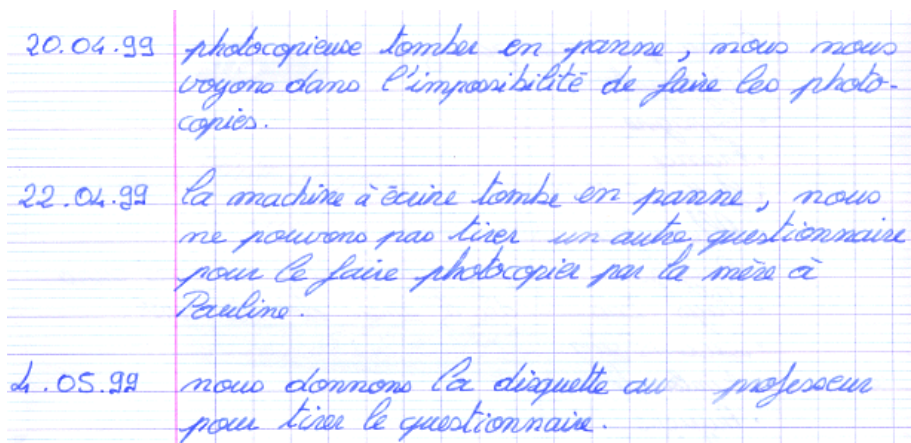 20.04.99 photocopieuse tomber en panne, nous nous
voyons dans l'impossibilité de faire les photo-
copies.
22.04.99 la machine à écrire tombe en panne, nous
ne pouvons pas tirer un autre questionnaire
pour le faire photocopier par la mère à
Pauline.
4.05.99 nous donnons la disquette au professeur
pour tirer le questionnaire.